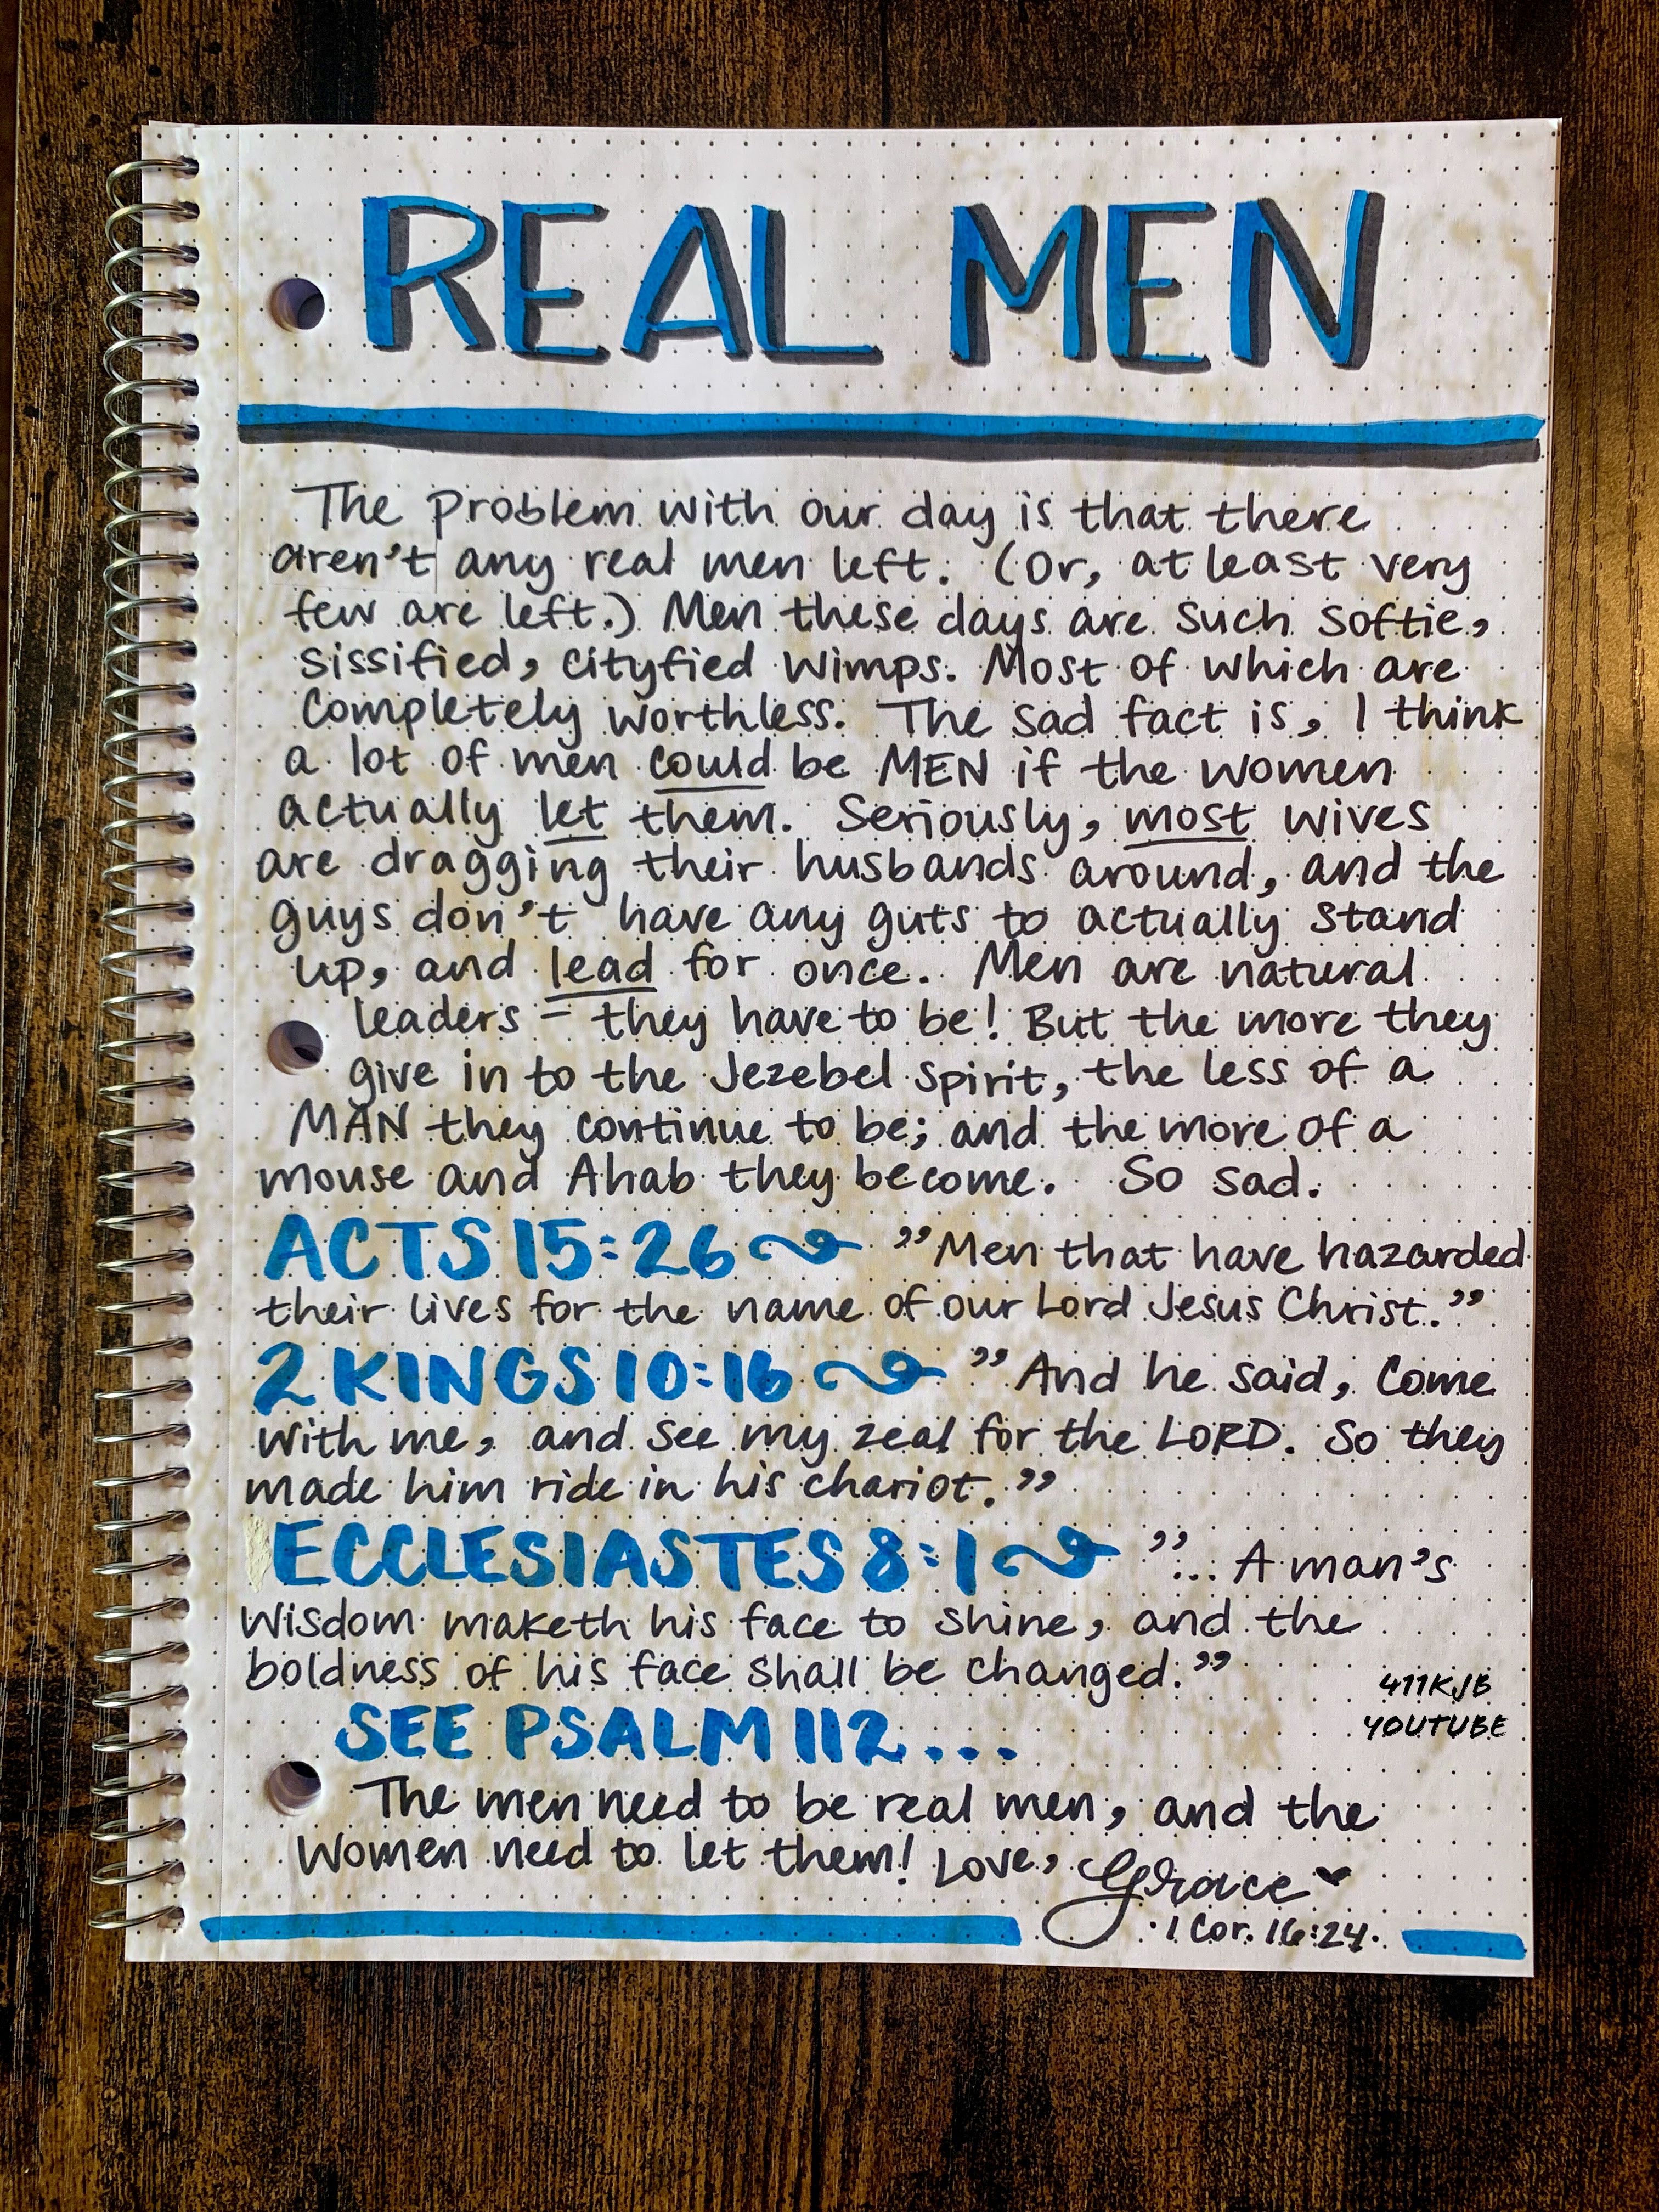 REAL MEN
The problem with our day is that there
aren't any real men left. (Or, at least very
few are left.) Men these days are such softie,
sissified, cityfied wimps. Most of which are
completely worthless. The sad fact is, I think
a lot of men could be MEN if the women
actually let them. Seriously, most wives
are dragging their husbands around, and the
guys don't have any guts to actually stand
up, and lead for once. Men are natural
leaders - they have to be! But the more they
give in to the Jezebel spirit, the less of a
MAN they continue to be; and the more of a
mouse and Ahab they become. So sad.
ACTS 15:26 "Men that have hazarded
their lives for the name of our Lord Jesus Christ."
2 KINGS 10:16 "And he said, Come
with me, and see my zeal for the LORD. So they
made him ride in his chariot."
ECCLESIASTES 8:1 "... A man's
wisdom maketh his face to shine, and the
boldness of his face shall be changed."
411KJB
YOUTUBE
SEE PSALM 112...
The men need to be real men, and the
women need to let them! Love, Grace
·1 Cor. 16:24·